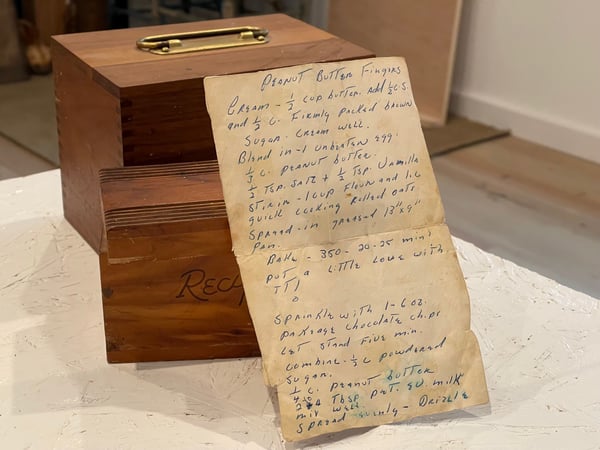 Peanut Butter Fingers
Cream - 1/2 cup butter. Add 1/2 c. S.
and 1/2 c. Firmly packed brown
Sugar. Cream well.
Blend in - 1 unbeaten egg.
1/3 c. peanut butter.
1/2 Tsp. Salt + 1/2 Tsp. Vanilla
Stir in - 1 cup Flour and 1 c
quick cooking Rolled oats.
Spread - in greased 13"x9"
Pan.
Bake - 350 - 20-25 min's
put a little Love with
IT!
Sprinkle with 1-6 oz.
package chocolate chips
Let stand Five min.
Combine - 1/2 c powdered
Sugar.
1/4 c. peanut butter
2-4 Tbsp. pet. ev. milk
mix well
Spread evenly - Drizzle
Recip